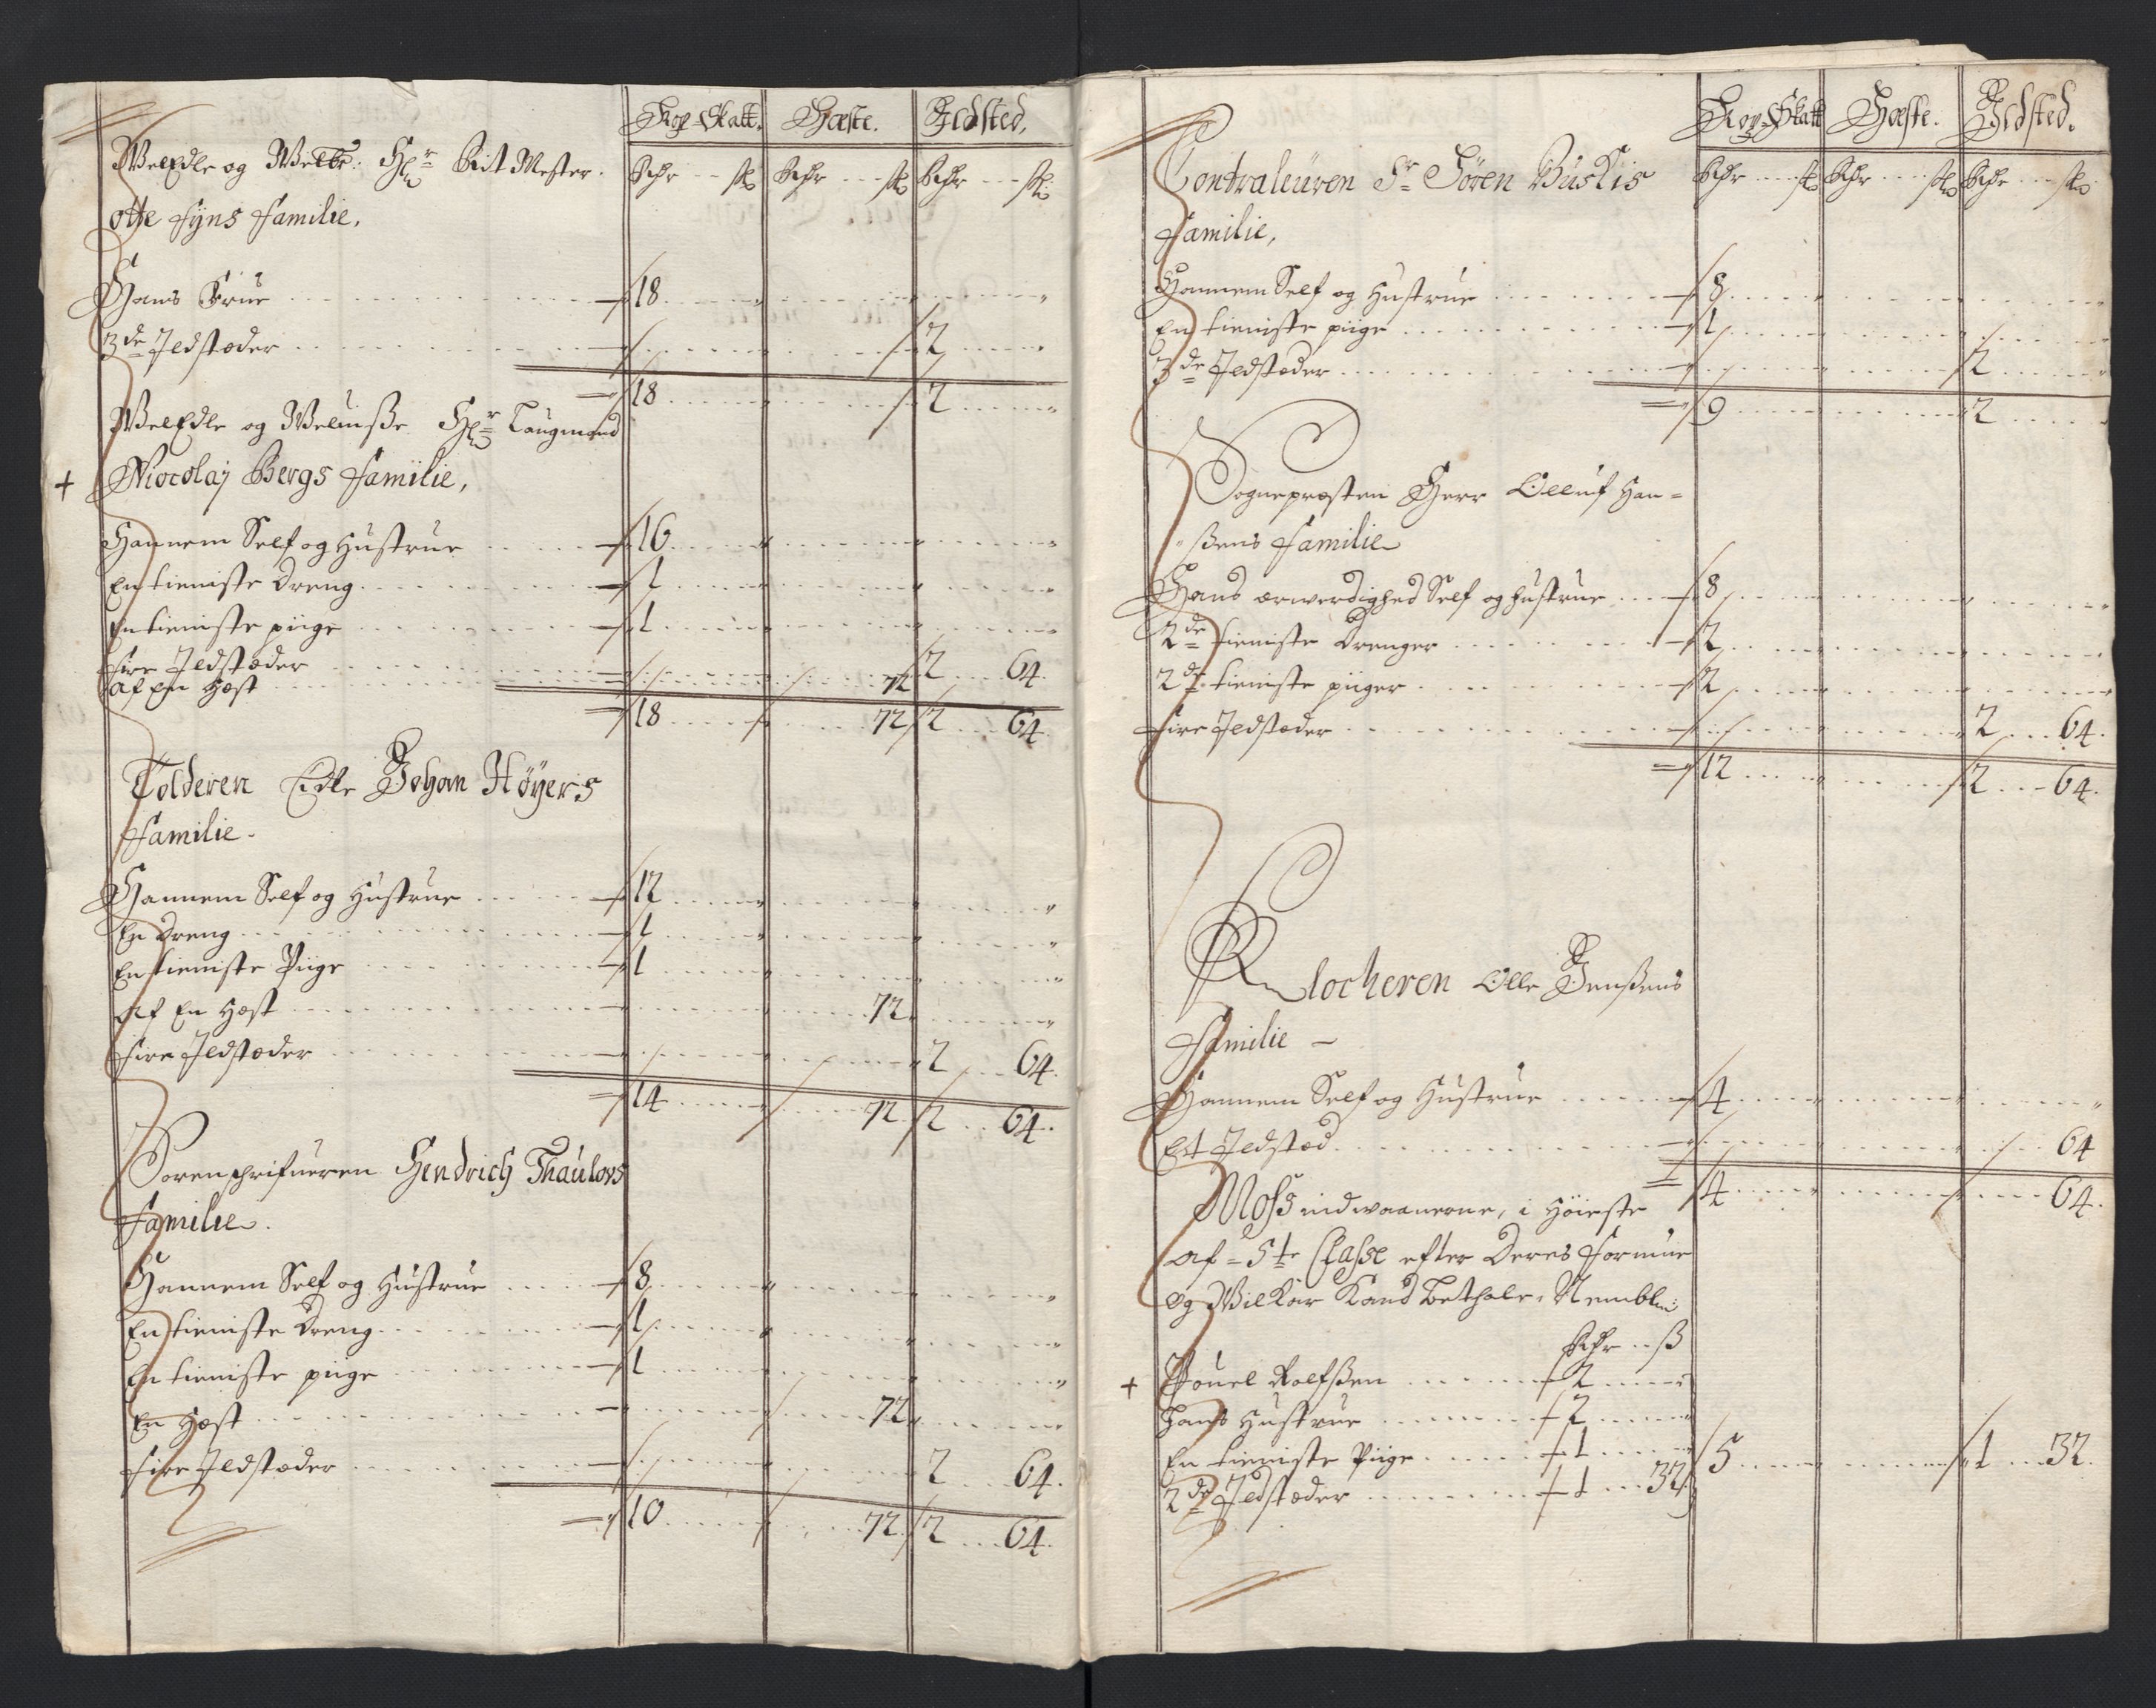 Kop-Skatt. Hæste. Ildsted.
Rdr ... sk Rdr ... sk Rdr ... sk
WelEdle og Welbr: Hr Rit Mester
otte Fÿns Familie.
Hans Frue 18
3de Ildstæder 2
18 2
WelEdle og Welwise Hr Laugmand
+ Niocolaj Bergs Familie,
Hannem Self og Hustrue 16
En tieniste dreng 1
En tieniste piige 1
fire Ildstæder 2 64.
af en Hæst 72
18 72 2 64.
Tolderen Edle Johan Höÿers
Familie.
Hannem Self og Hustrue 12
En dreng 1
En tieniste Piige 1
af En Hæst 72
fire Ildstæder 2 64.
14 72 2 64.
Sorenschrifueren Hendrich Thaulovs
Familie.
Hannem Self og Hustrue 8
En tieniste dreng 1
En tieniste piige 1
En Hæst 72
fire Ildstæder 2 64.
10 72 2 64.
Kop-Skatt Hæste. Ildsted.
Rdr ... sk Rdr ... sk Rdr ... sk
Contraleuren Sr Sören Buskis
Familie,
Hannem Self og Hustrue 8
En tieniste piige 1
3de Ildstæder 2
9 2
Sognepræsten Herr Olluf Han=
ßens Familie
Hans ærwerdighed Self og hustrue 8
2de tieniste Drenger 2
2de tieniste piiger 2
fire Ildstæder 2 64.
12 2 64.
Klocheren Olle Jenßens
Familie –
Hannem Self og Hustrue 4
Et Ildstæd 64
4 64.
Moss indwaanerne, i Höieste
af = 5te Classe efter deres formue
og Wilkår Kand bethale, Nembl:
Rdr .. ß
+ Pouel Rolfßen 2
Hans Hustrue 2
En tieniste Piige 1 5 1 32.
2de Ildstæder 1 32